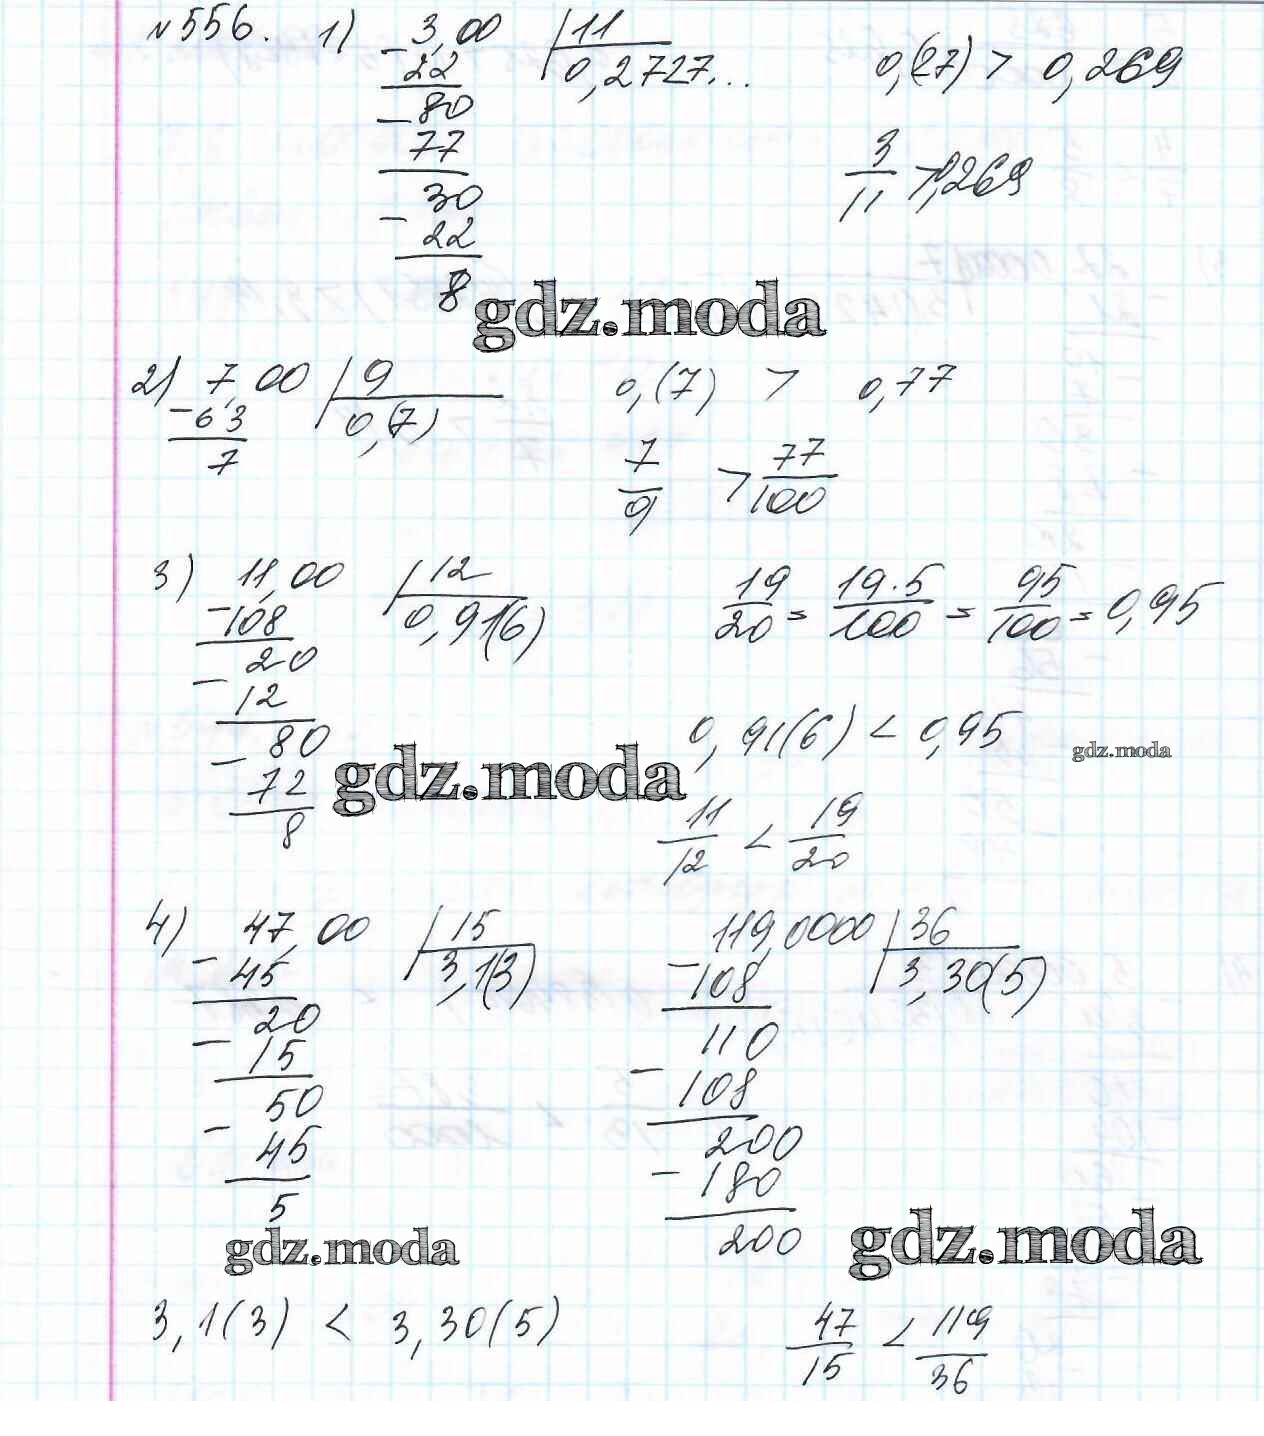 №556. 1) 3,00 | 11
- 22 0,2727...
- 80
77
- 30
22
8
0,(27) > 0,269
3/11 > 0,269
gdz.moda
2) 7,00 | 9
- 63 0,(7)
7
0,(7) > 0,77
7/9 > 77/100
3) 11,00 | 12
- 108 0,91(6)
20
- 12
- 80
72
8
19/20 = 19·5/100 = 95/100 = 0,95
0,91(6) < 0,95
gdz.moda
gdz.moda
11/12 < 19/20
4) 47,00 | 15
- 45 3,1(3)
20
- 15
50
- 45
5
119,0000 | 36
- 108 3,30(5)
110
- 108
200
- 180
200
gdz.moda
gdz.moda
3,1(3) < 3,30(5)
47/15 < 119/36